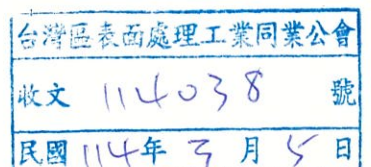 台灣區表面處理工業同業公會
收文 114038 號
民國 114年 3 月 5 日